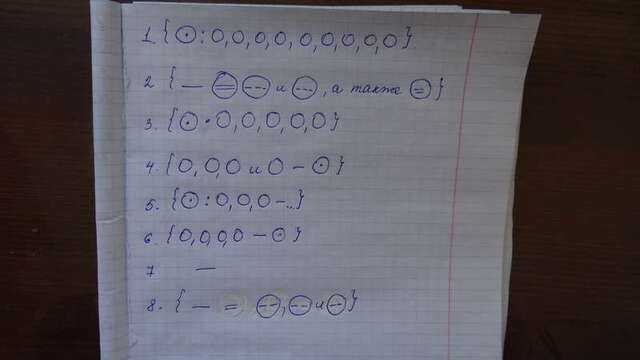 1. {⊙: O, O, O, O, O, O, O, O, O}
2 { — ⊜ ⊝ и ⊝, а также ⊜}
3. {⊙ · O, O, O, O, O}
4. {O, O, O и O — ⊙}
5. {⊙: O, O, O —...}
6. {O, O, O, O — ⊙}
7 —
8. { — = ⊝, ⊝ и ⊝}